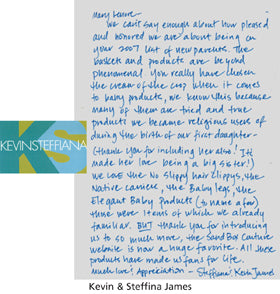 Mary Lenore -
We can't say enough about how pleased
and honored we are about being on
your 2007 list of new parents. The
baskets and products are beyond
phenomenal. You really have chosen
the cream of the crop when it comes
to baby products, we know this because
many of them are tried and true
products we became religious users of
during the birth of our first daughter-
(thank you for including her also! It
made her love being a big sister!)
we love the No Slippy Hair Clippys, the
Native carriers, the Baby legs, the
Elegant Baby Products (to name a few)
these were items of which we already
familiar. BUT thank you for introducing
us to so much more, the Sand Box Couture
website is now a huge favorite. All these
products have made us fans for life.
Much love & Appreciation - Steffiana & Kevin James
KEVINSTEFFIANA
KS
Kevin & Steffina James